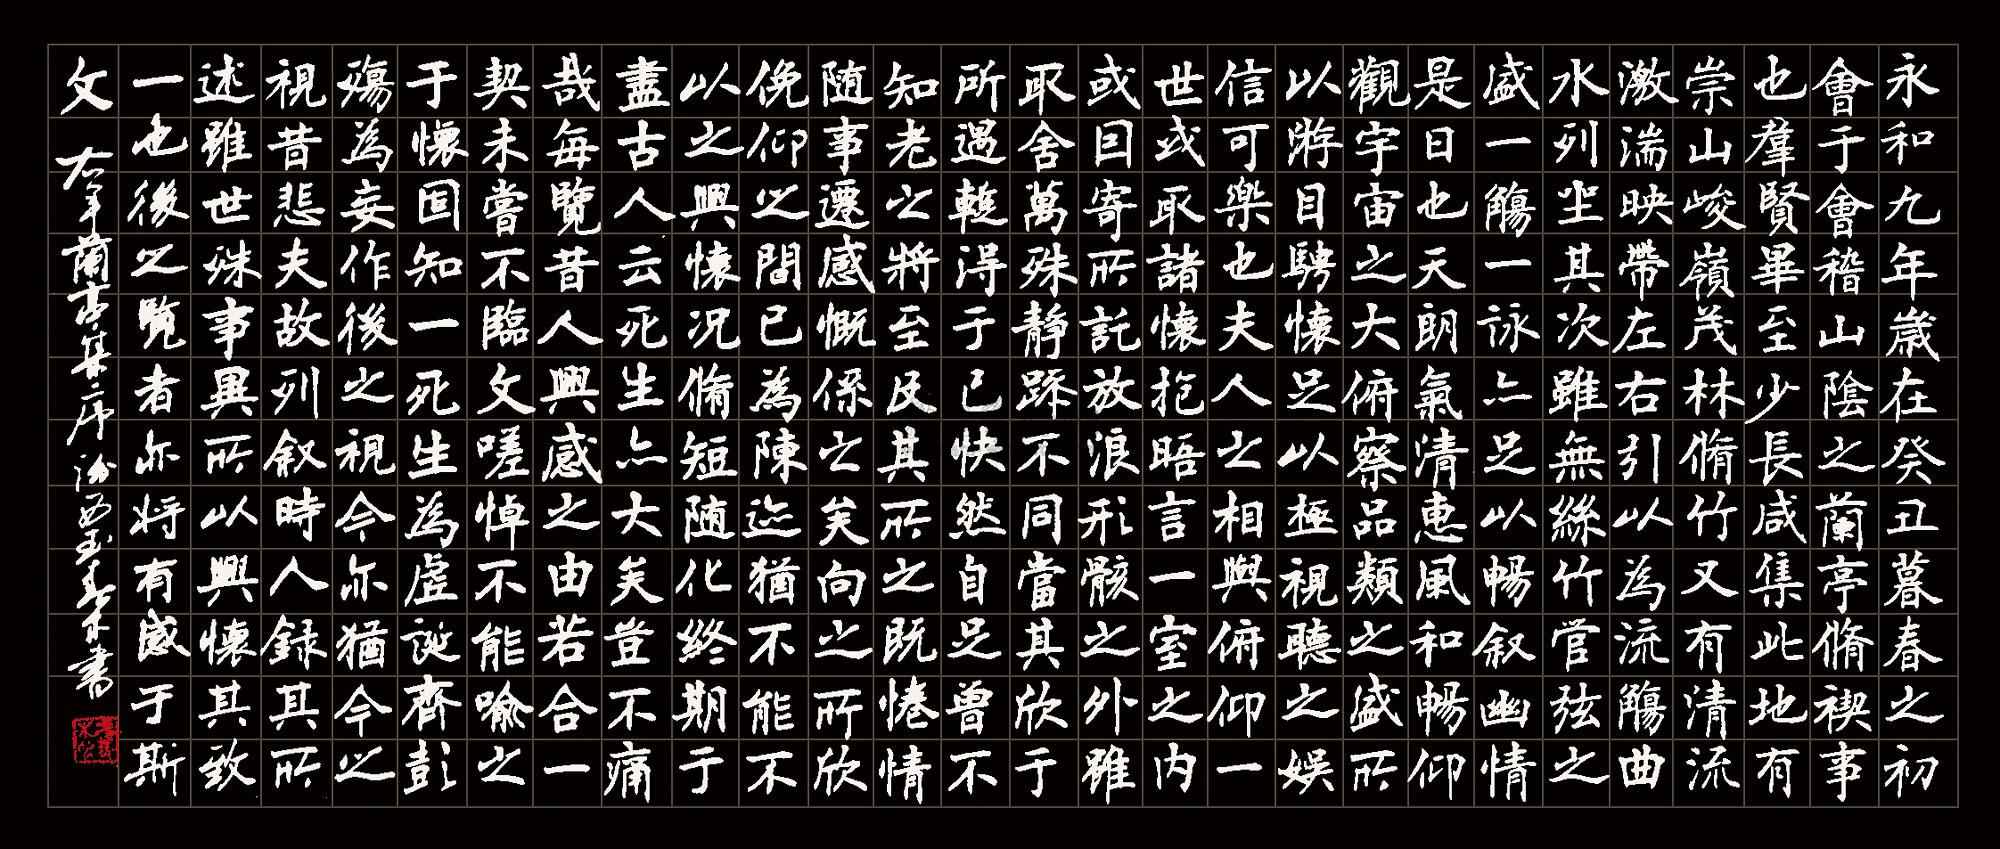 永和九年歲在癸丑暮春之初
會于會稽山陰之蘭亭脩禊事
也羣賢畢至少長咸集此地有
崇山峻嶺茂林脩竹又有清流
激湍映帶左右引以為流觴曲
水列坐其次雖無絲竹管弦之
盛一觴一詠亦足以暢叙幽情
是日也天朗氣清惠風和暢仰
觀宇宙之大俯察品類之盛所
以游目騁懷足以極視聽之娛
信可樂也夫人之相與俯仰一
世或取諸懷抱晤言一室之内
或因寄所託放浪形骸之外雖
取舍萬殊静躁不同當其欣于
所遇蹔得于己快然自足曾不
知老之將至及其所之既惓情
随事遷感慨係之矣向之所欣
俛仰之間已為陳迹猶不能不
以之興懷况脩短随化終期于
盡古人云死生亦大矣豈不痛
哉每覽昔人興感之由若合一
契未嘗不臨文嗟悼不能喻之
于懷固知一死生為虛誕齊彭
殤為妄作後之視今亦猶今之
視昔悲夫故列叙時人録其所
述雖世殊事異所以興懷其致
一也後之覽者亦将有感于斯
文 右軍蘭亭集之序 汾西 書